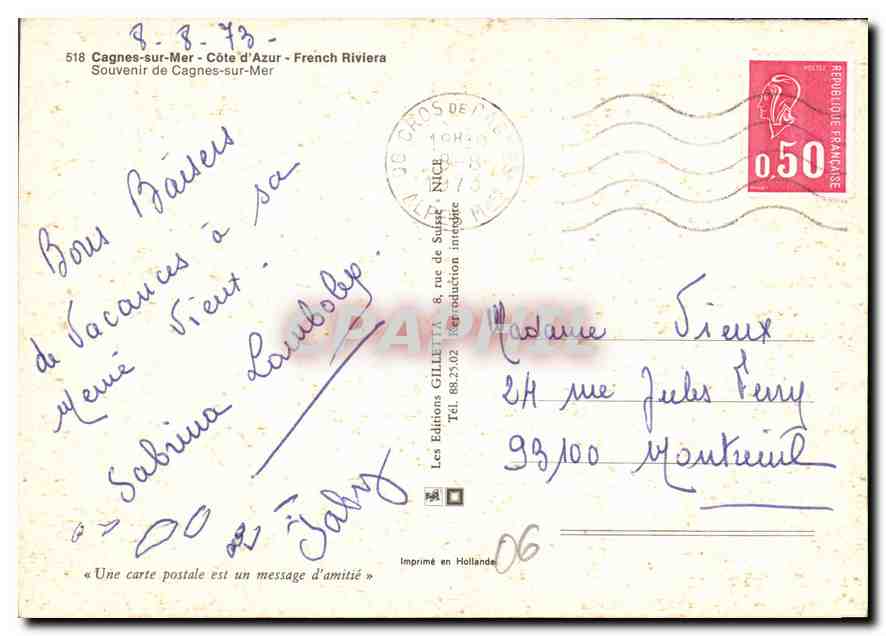 8-8-73-
518 Cagnes-sur-Mer - Côte d'Azur - French Riviera
Souvenir de Cagnes-sur-Mer
Bons Baisers
de Vacances à sa
Mémé Vieux.
Sabrina Lamboley.
« Une carte postale est un message d'amitié »
CROS DE CAGNES
8-8
1973
ALPES Mmes
Les Editions GILLETTA 8, rue de Suisse - NICE
Tél. 88.25.02 Reproduction interdite
Imprimé en Hollande
POSTES
RÉPUBLIQUE FRANÇAISE
0,50
Madame Vieux
24 rue Jules Ferry
93100 Montreuil
06
CPAPHIL